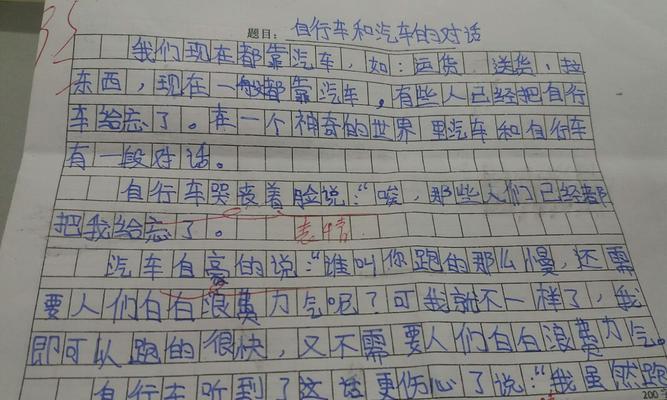 题目: 自行车和汽车的对话
我们现在都靠汽车，如：运货，送货，拉
东西，现在一般都靠汽车。有些人已经把自行
车给忘了。在一个神奇的世界里汽车和自行车
有一段对话。
自行车哭丧着脸说：“唉，那些人们已经都
把我给忘了。 表情
汽车自豪的说：“谁叫你跑的那么慢，还需
要人们白白浪费力气呢？可我就不一样了，我
即可以跑的很快，又不需要人们白白浪费力气。
自行车听到了这话更伤心了说：“我虽然跑
200